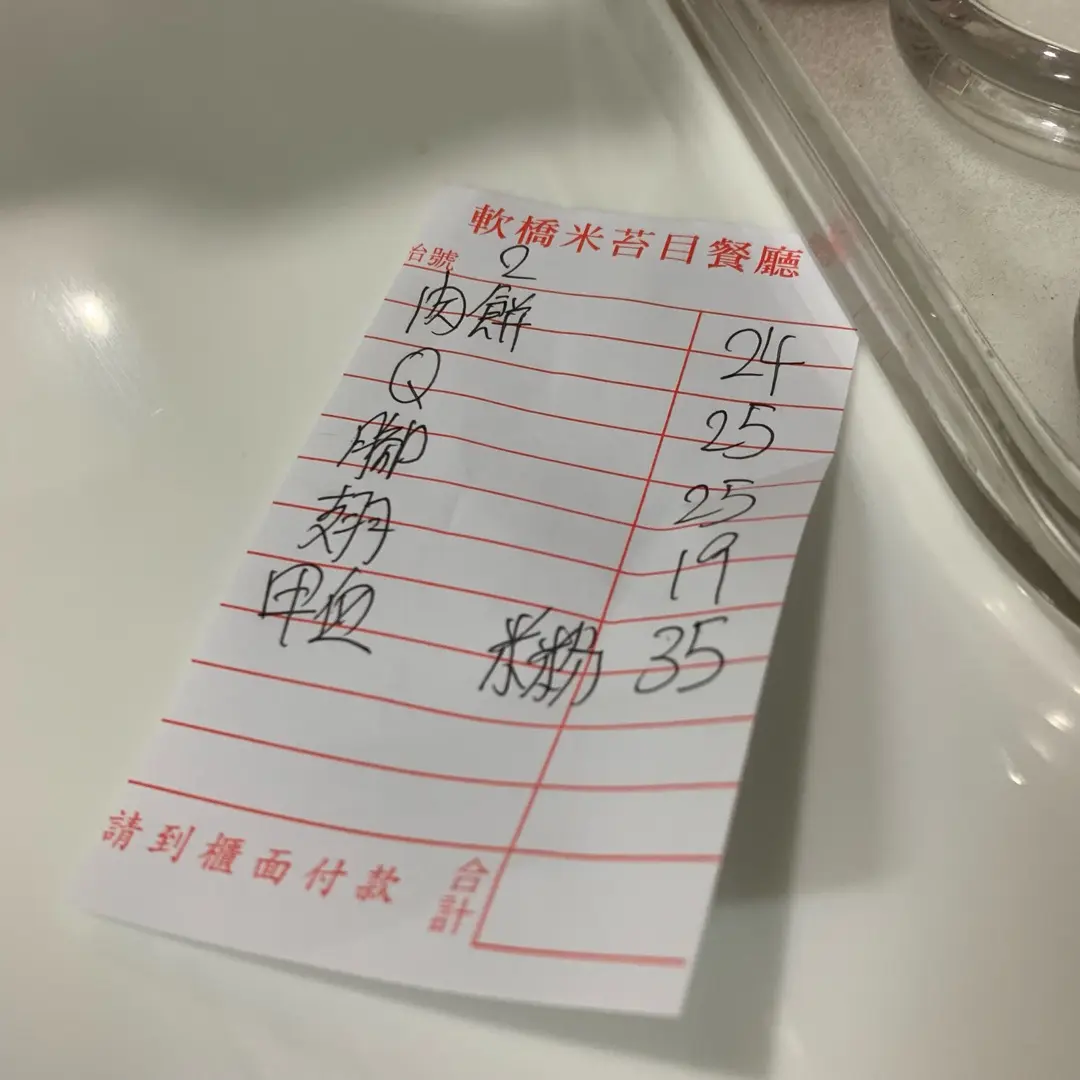 軟橋米苔目餐廳
台號 2
肉餅 24
Q 25
腳 25
翅 19
甲由 米粉 35
請到櫃面付款 合計